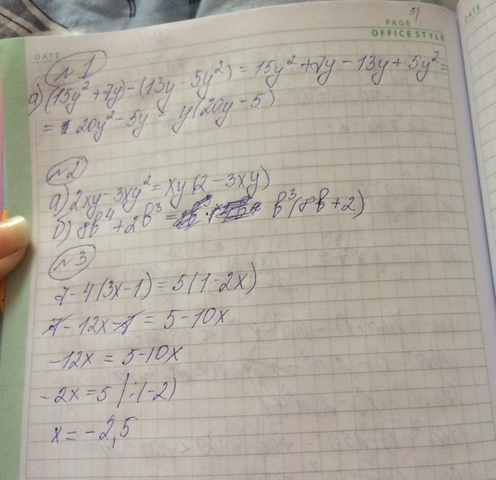 DATE
PAGE
OFFICE STYLE
№1
а) (15y² + 7y) - (13y - 5y²) = 15y² + 7y - 13y + 5y² =
= 20y² - 5y = y(20y - 5)
№2
а) 2xy - 3xy² = xy(2 - 3xy)
б) 8b⁴ + 2b³ = b³(8b + 2)
№3
7 - 4(3x - 1) = 5(1 - 2x)
7 - 12x - 7 = 5 - 10x
-12x = 5 - 10x
-2x = 5 | :(-2)
x = -2,5
DATE